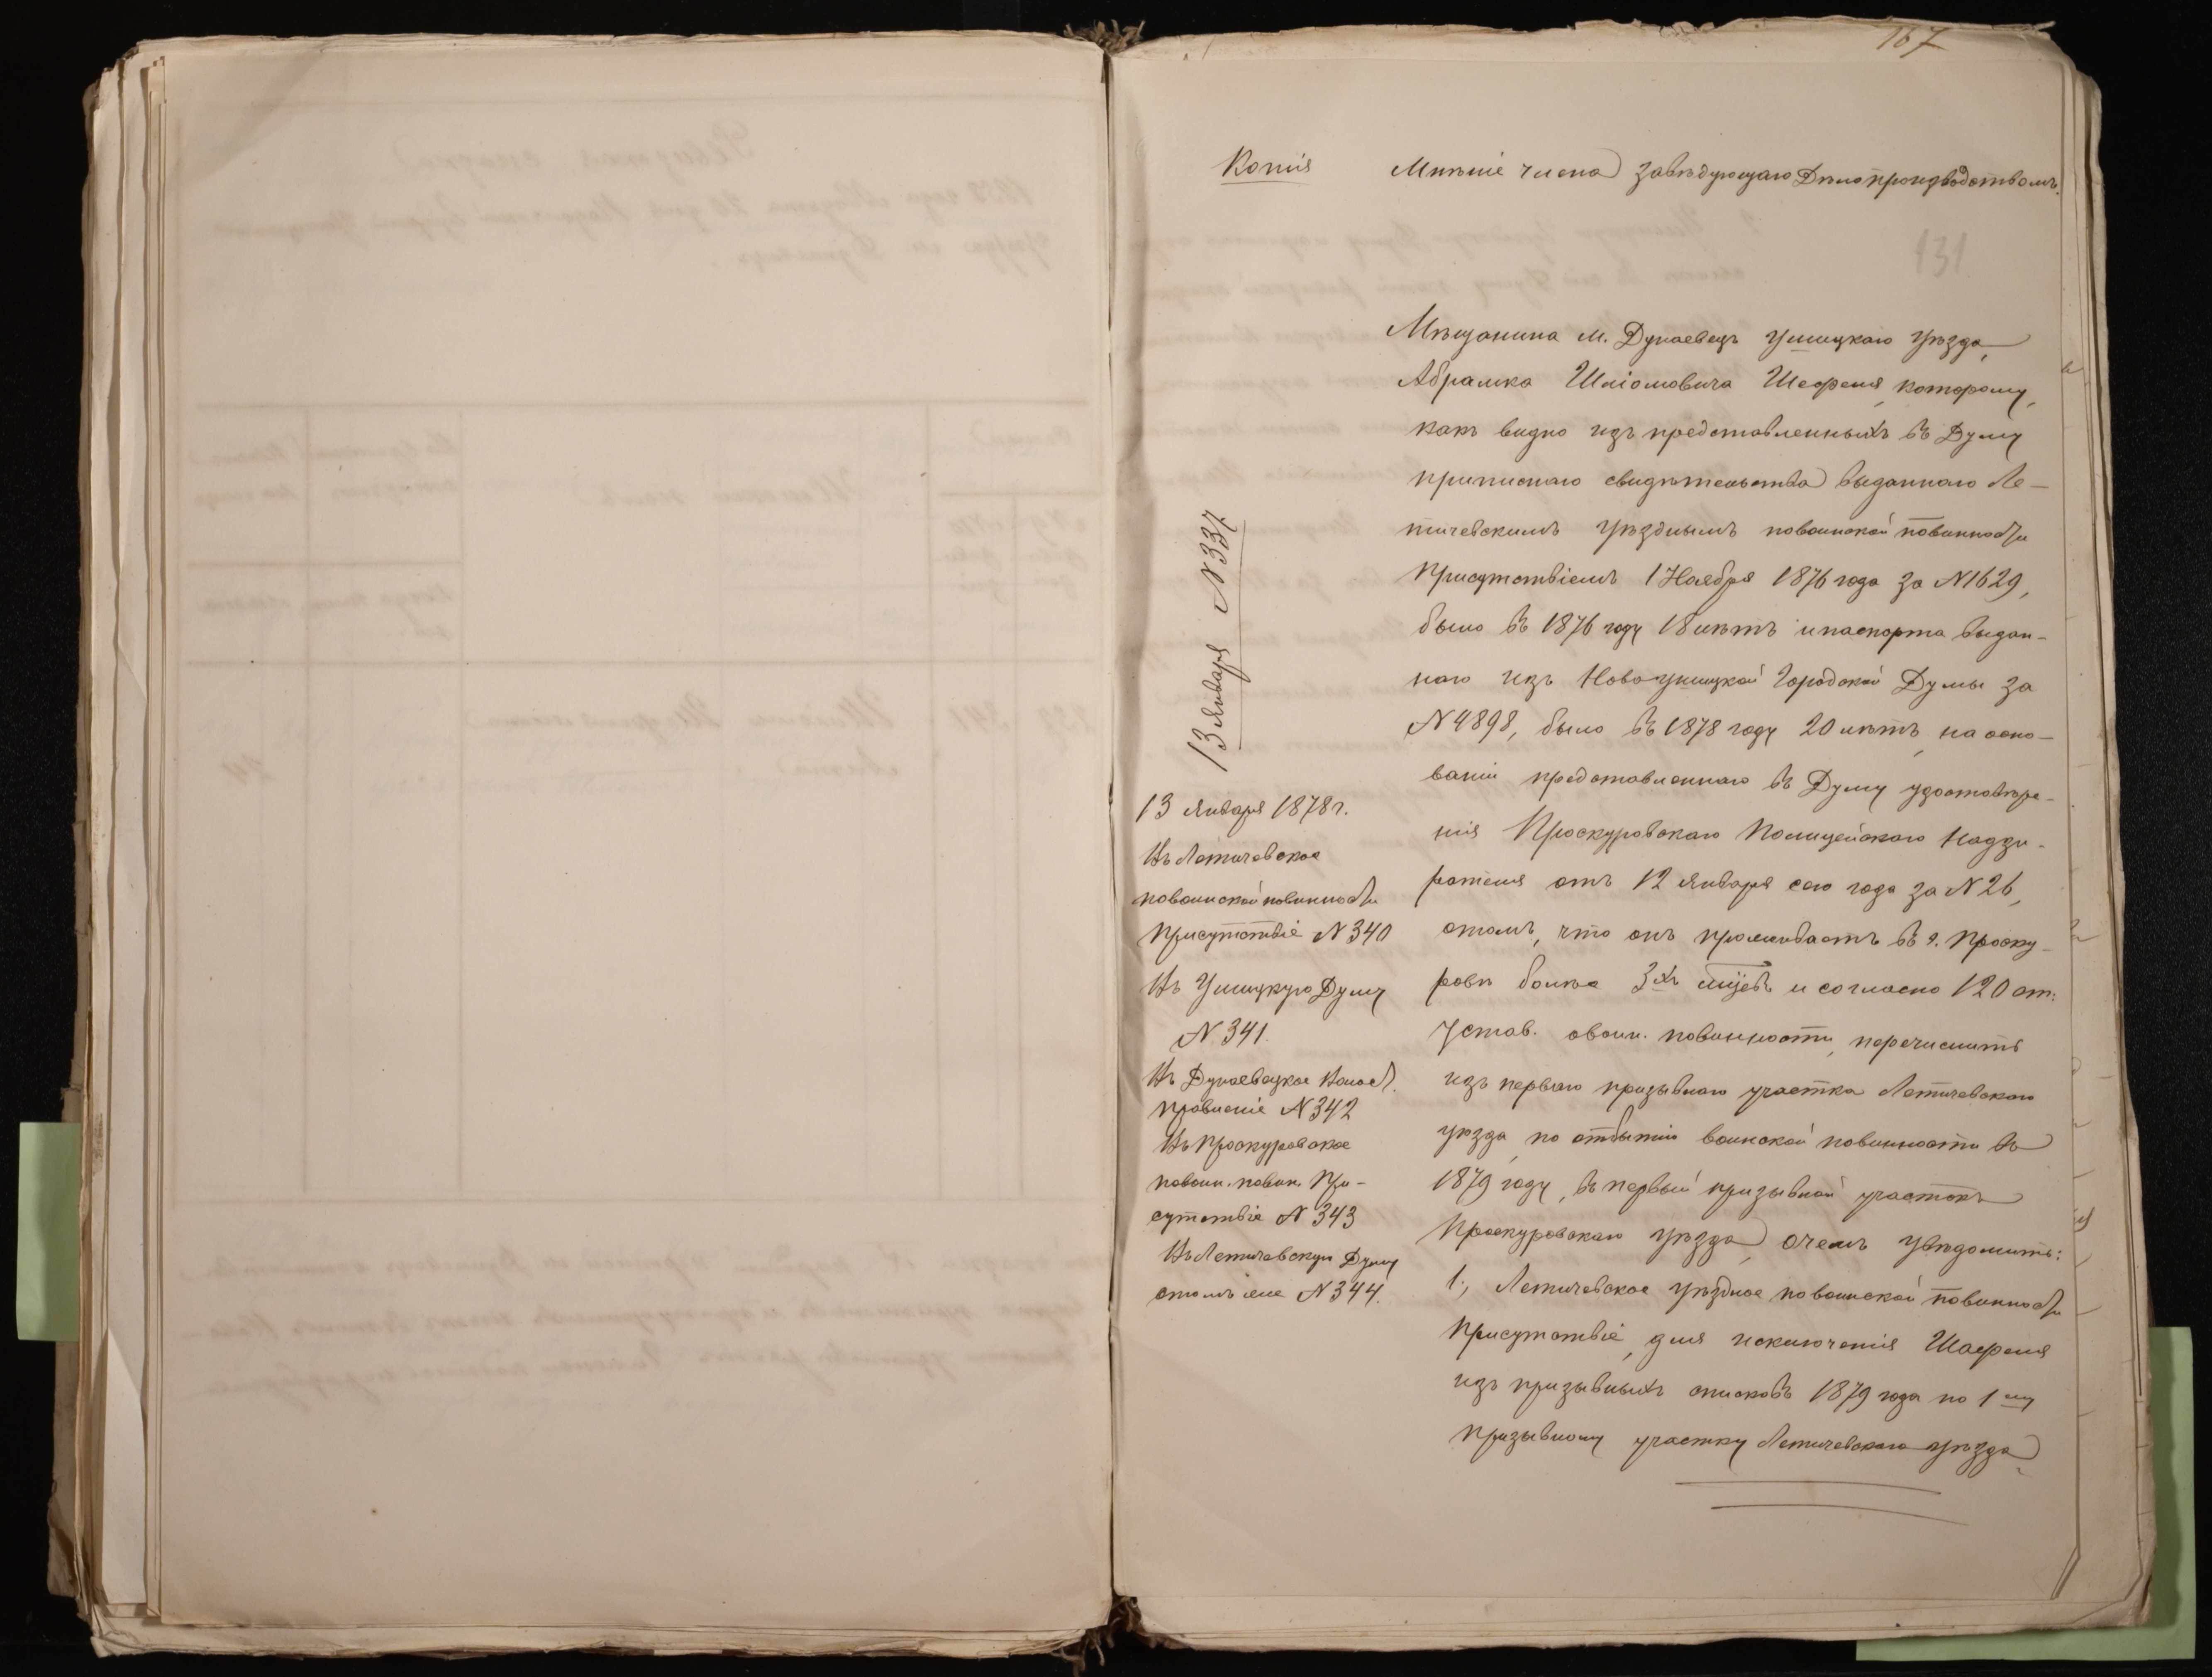 167
Копія
Мнѣніе члена завѣдующаго Дѣлопроизводствомъ.
131
Мѣщанина м. Дунаевецъ Ушицкаго Уѣзда,
Абрамка Шліомовича Шефеля, которому,
какъ видно изъ представленныхъ въ Думу
приписнаго свидѣтельства выданнаго Ле-
тичевскимъ Уѣзднымъ повоинской повинности
Присутствіемъ 1 Ноября 1876 года за N 1629,
было въ 1876 году 18 лѣтъ и паспорта выдан-
наго изъ Новоушицкой Городской Думы за
N 4898, было въ 1878 году 20 лѣтъ, на осно-
ваніи представленнаго въ Думу удостовѣре-
нія Проскуровскаго Полицейскаго Надзи-
рателя отъ 12 Января сего года за N 26,
отомъ, что онъ проживаетъ въ г. Проску-
ровѣ болѣе 3хъ мцевъ и согласно 120 ст:
Устав. овоин. повинности, перечислить
изъ перваго призывнаго участка Летичевскаго
уѣзда, по отбытію воинской повинности въ
1879 году, въ первый призывной участокъ
Проскуровскаго уѣзда, очемъ увѣдомить:
1., Летичевское уѣздное повоинской повинности
Присутствіе, для исключенія Шаефеля
изъ призывныхъ списковъ 1879 года по 1му
призывному участку Летичевскаго уѣзда
13 Января N 337
13 Января 1878 г.
Въ Летичевское
повоинской повинности
Присутствіе N 340
Въ Ушицкую Думу
N 341.
Въ Дунаевецкое Волост.
Правленіе N 342
Въ Проскуровское
повоин. повин. При-
сутствіе N 343
Въ Летичевскую Думу
отомъ же N 344.